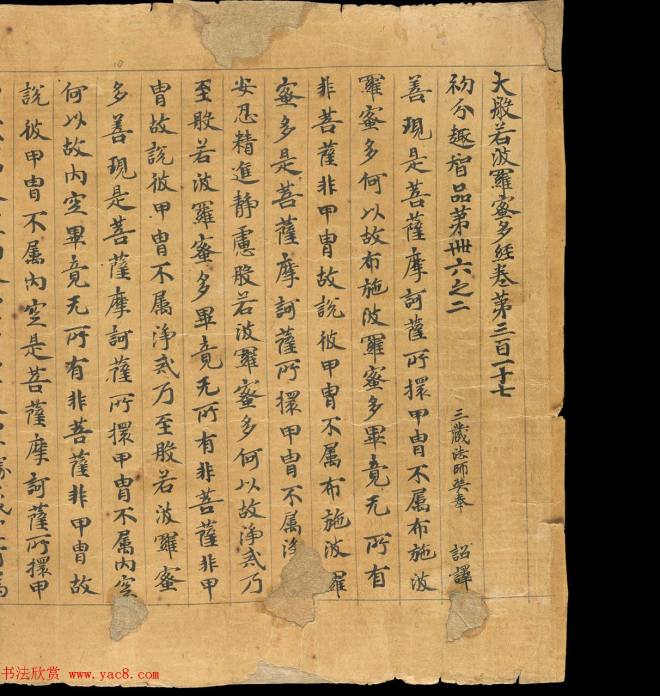 大般若波羅蜜多經卷第三百一十七
初分趣智品第卌六之二
三藏法師玄奘奉 詔譯
善現是菩薩摩訶薩所擐甲冑不属布施波
羅蜜多何以故布施波羅蜜多畢竟无所有
非菩薩非甲冑故說彼甲冑不属布施波羅
蜜多是菩薩摩訶薩所擐甲冑不属淨
安忍精進静慮般若波羅蜜多何以故淨戒乃
至般若波羅蜜多畢竟无所有非菩薩非甲
冑故說彼甲冑不属淨戒乃至般若波羅蜜
多善現是菩薩摩訶薩所擐甲冑不属内空
何以故内空畢竟无所有非菩薩非甲冑故
說彼甲冑不属内空是菩薩摩訶薩所擐甲
书法欣赏 www.yac8.com